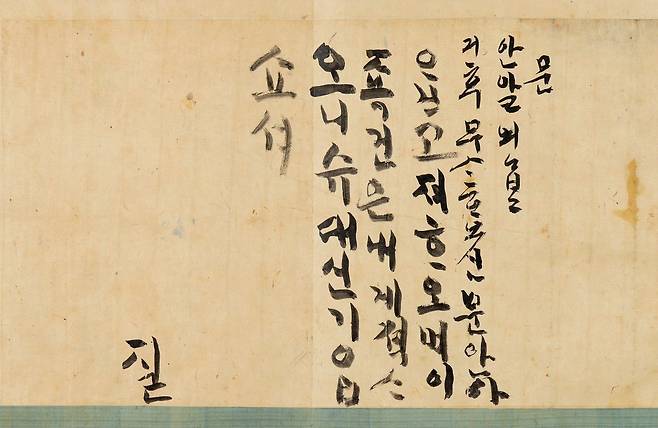 문
안알외ᄋᆞᆸ
긔후무ᄉᆞᄒᆞ오신문안아
ᄋᆞᆸ고져ᄒᆞ오며이
족건은내게젹ᄉᆞ
오니슈대신기ᄋᆞᆸ
쇼셔
질